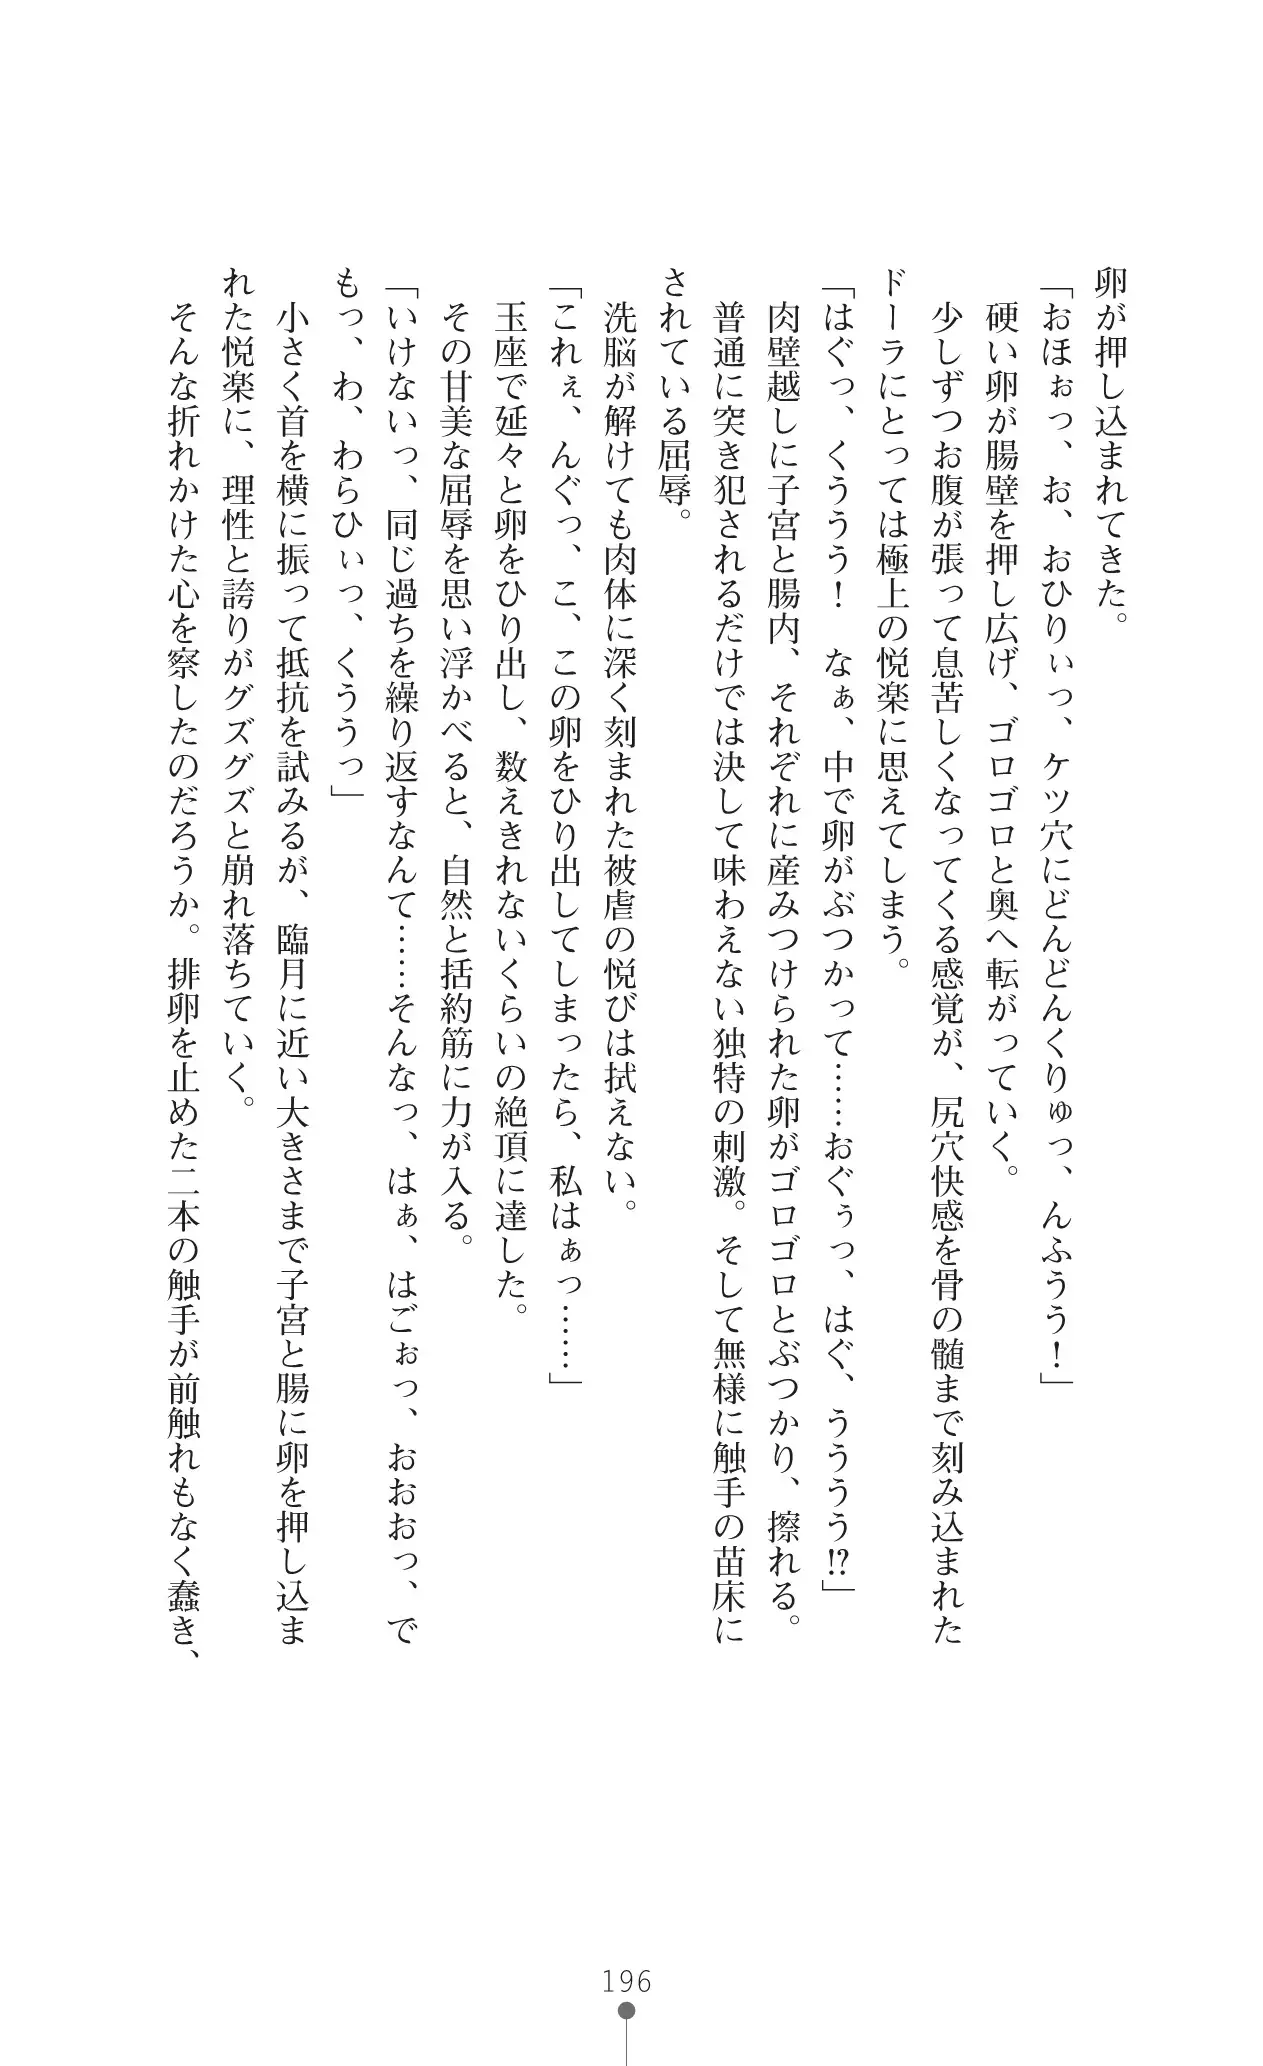 卵が押し込まれてきた。
「おほぉっ、お、おひりぃっ、ケツ穴にどんどんくりゅっ、んふうう！」
硬い卵が腸壁を押し広げ、ゴロゴロと奥へ転がっていく。
少しずつお腹が張って息苦しくなってくる感覚が、尻穴快感を骨の髄まで刻み込まれた
ドーラにとっては極上の悦楽に思えてしまう。
「はぐっ、くううう！　なぁ、中で卵がぶつかって……おぐぅっ、はぐ、うううう!?」
肉壁越しに子宮と腸内、それぞれに産みつけられた卵がゴロゴロとぶつかり、擦れる。
普通に突き犯されるだけでは決して味わえない独特の刺激。そして無様に触手の苗床に
されている屈辱。
洗脳が解けても肉体に深く刻まれた被虐の悦びは拭えない。
「これぇ、んぐっ、こ、この卵をひり出してしまったら、私はぁっ……」
玉座で延々と卵をひり出し、数えきれないくらいの絶頂に達した。
その甘美な屈辱を思い浮かべると、自然と括約筋に力が入る。
「いけないっ、同じ過ちを繰り返すなんて……そんなっ、はぁ、はごぉっ、おおおっ、で
もっ、わ、わらひぃっ、くううっ」
小さく首を横に振って抵抗を試みるが、臨月に近い大きさまで子宮と腸に卵を押し込ま
れた悦楽に、理性と誇りがグズグズと崩れ落ちていく。
そんな折れかけた心を察したのだろうか。排卵を止めた二本の触手が前触れもなく蠢き、
196